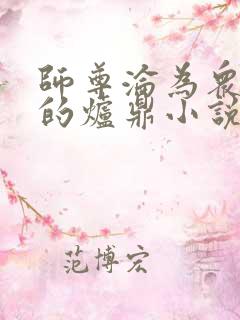 師尊淪為眾
的爐鼎小說
范博宏